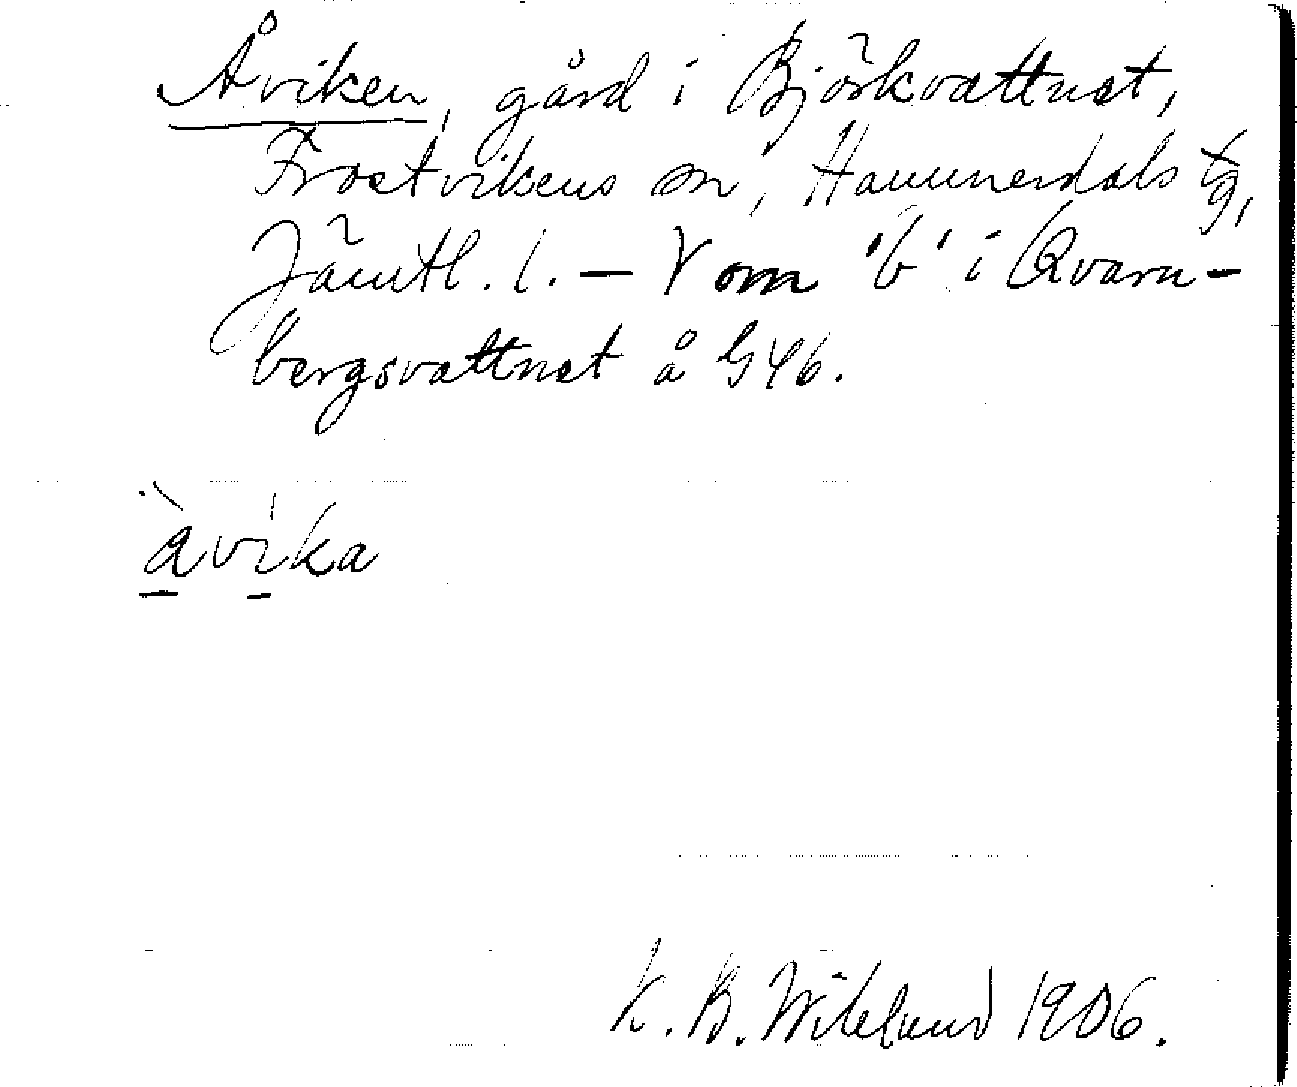 Åviken, gård i Björkvattnet,
Frostvikens sn, Hammerdals tg,
Jämtl. l. – V om 'b' i Qvarn-
bergsvattnet å G46.
àvika
K. B. Wiklund 1906.